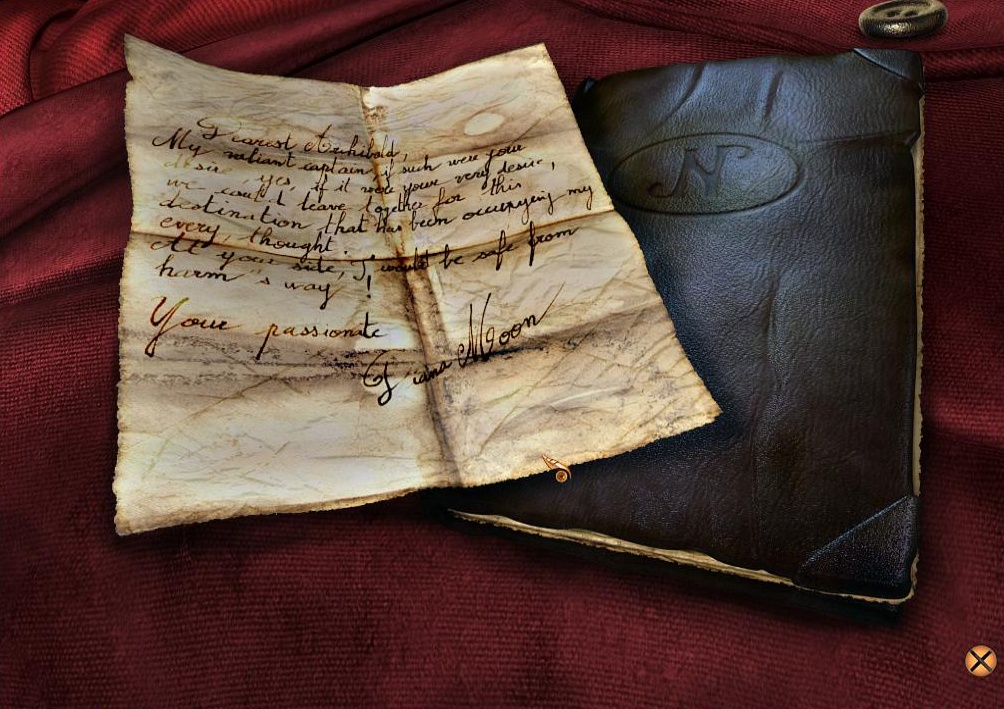 Dearest Archibald,
My valiant captain, if such were your
desire, yes, if it were your very desire,
we could leave together for this
destination that has been occupying my
every thought.
At your side, I would be safe from
harm's way!
Your passionate
Diana Moon
N